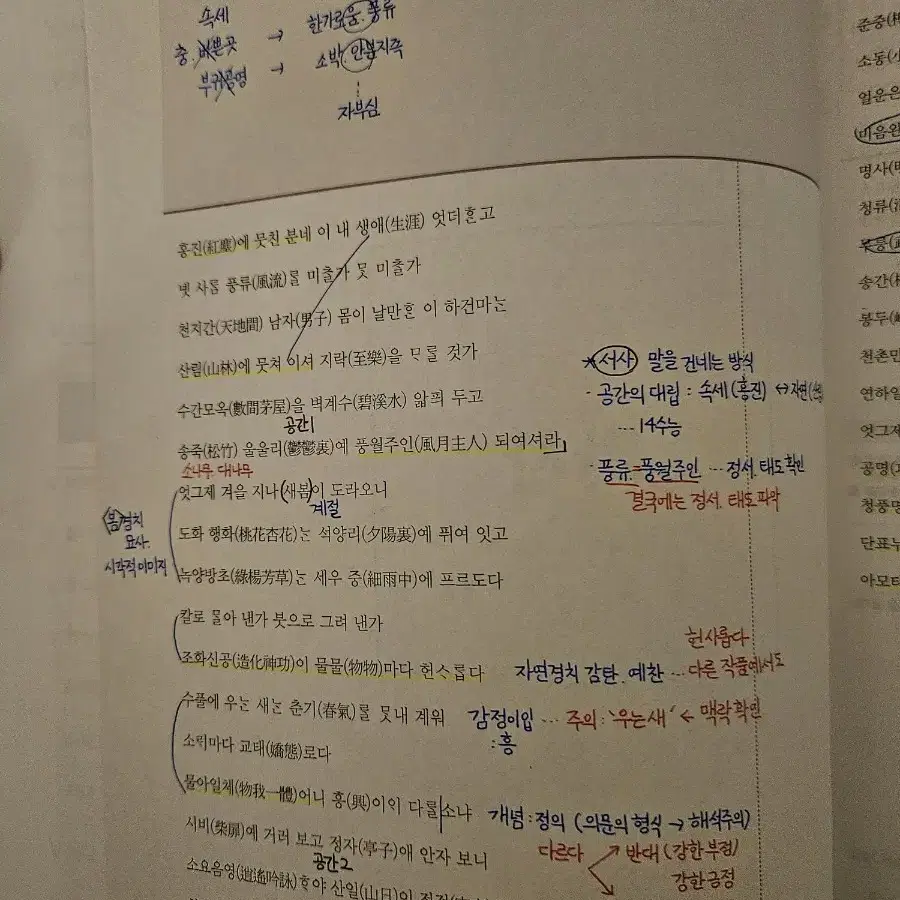 속세 → 한가로움. 풍류
충. 바쁜곳
부귀공명 → 소박. 안분지족
자부심
홍진(紅塵)에 뭇친 분네 이 내 생애(生涯) 엇더ᄒᆞᆫ고
녯 사ᄅᆞᆷ 풍류(風流)ᄅᆞᆯ 미ᄎᆞᆯ가 ᄆᆞᆺ 미ᄎᆞᆯ가
천지간(天地間) 남자(男子) 몸이 날만ᄒᆞᆫ 이 하건마ᄂᆞᆫ
산림(山林)에 뭇쳐 이셔 지락(至樂)을 ᄆᆞᄅᆞᆯ 것가
수간모옥(數間茅屋)을 벽계수(碧溪水) 앏ᄑᆡ 두고
공간1
송죽(松竹) 울울리(鬱鬱裏)예 풍월주인(風月主人) 되여셔라
소나무 대나무
엇그제 겨을 지나 (새봄)이 도라오니
계절
도화 행화(桃花杏花)ᄂᆞᆫ 석양리(夕陽裏)예 퓌여 잇고
녹양방초(綠楊芳草)ᄂᆞᆫ 세우 중(細雨中)에 프르도다
(봄)경치
묘사.
시각적 이미지
칼로 ᄆᆞᆯ아 낸가 붓으로 그려 낸가
조화신공(造化神功)이 물물(物物)마다 헌ᄉᆞ롭다
수풀에 우ᄂᆞᆫ 새ᄂᆞᆫ 춘기(春氣)ᄅᆞᆯ ᄆᆞᆺ내 계워
소ᄅᆡ마다 교태(嬌態)로다
물아일체(物我一體)어니 흥(興)이ᄋᆡ 다ᄅᆞᆯ소냐
시비(柴扉)예 거러 보고 정자(亭子)애 안자 보니
공간2
소요음영(逍遙吟詠)ᄒᆞ야 산일(山日)이
*서사 말을 건네는 방식
· 공간의 대립 : 속세(홍진) ↔ 자연
… 14수능
· 풍류 = 풍월주인 … 정서. 태도 확인
결국에는 정서. 태도 파악
헌사롭다
자연경치 감탄. 예찬 … 다른 작품에서도
감정이입 … 주의 : '우는새' ← 맥락확인
: 흥
개념 : 정의 (의문의 형식 → 해석주의)
다르다 반대 (강한 부정)
강한 긍정
준중
소동
얼운은
미음완
명사
청류
송간
봉두
천촌만
연하일
엇그제
공명
청풍명
단표누
아모타